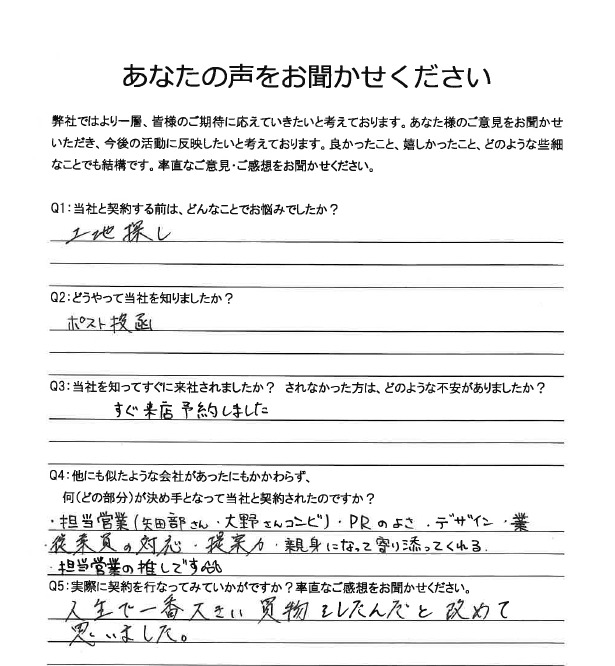 あなたの声をお聞かせください
弊社ではより一層、皆様のご期待に応えていきたいと考えております。あなた様のご意見をお聞かせ
いただき、今後の活動に反映したいと考えております。良かったこと、嬉しかったこと、どのような些細
なことでも結構です。率直なご意見・ご感想をお聞かせください。
Q1：当社と契約する前は、どんなことでお悩みでしたか？
土地探し
Q2：どうやって当社を知りましたか？
ポスト投函
Q3：当社を知ってすぐに来社されましたか？ されなかった方は、どのような不安がありましたか？
すぐ来店予約しました
Q4：他にも似たような会社があったにもかかわらず、
何（どの部分）が決め手となって当社と契約されたのですか？
・担当営業（矢田部さん・大野さんコンビ）・PRのよさ・デザイン・
従業員の対応・提案力・親身になって寄り添ってくれる
・担当営業の推しです
Q5：実際に契約を行なってみていかがですか？率直なご感想をお聞かせください。
人生で一番大きい買物をしたんだと改めて
思いました。